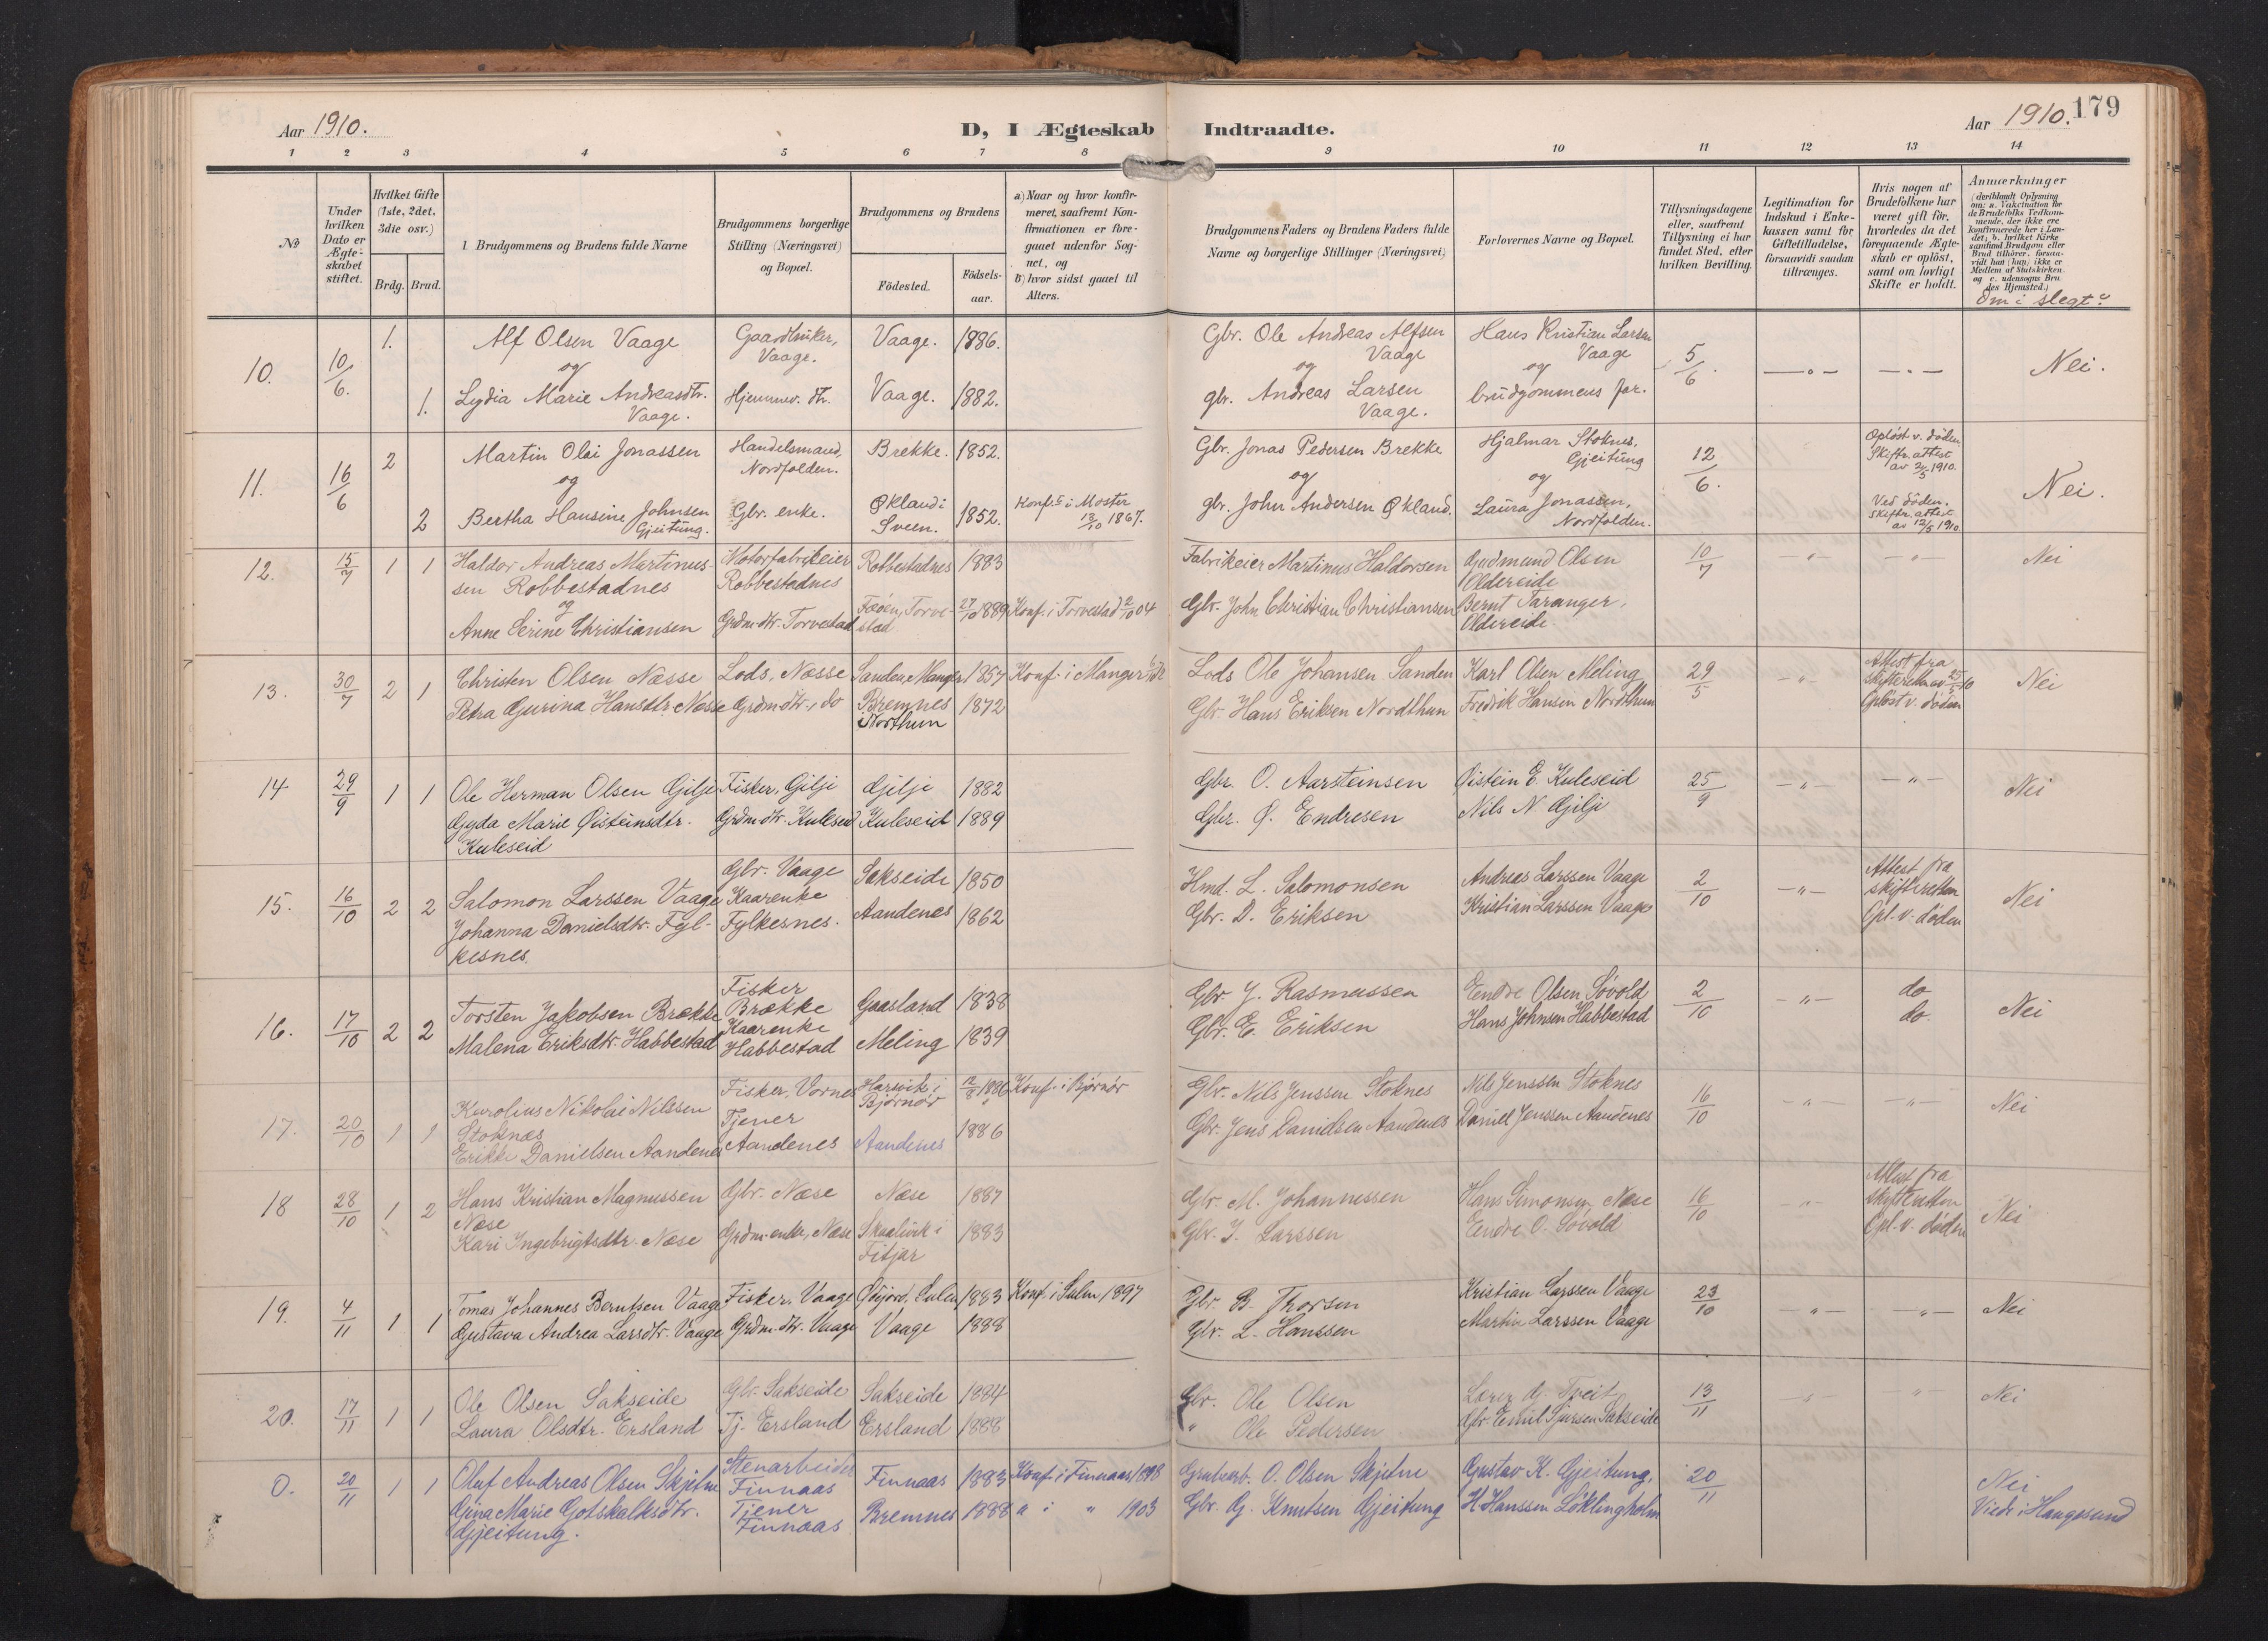 Aar 1910.
D, I Ægteskab Indtraadte.
Aar 1910. 179
1 2 3 4 5 6 7 8 9 10 11 12 13 14
No
Under hvilken Dato er Ægteskabet stiftet.
Hvilket Gifte (1ste, 2det, 3die osv.)
Brdg. Brud.
Brudgommens og Brudens fulde Navne
Brudgommens borgerlige Stilling (Næringsvei) og Bopæl.
Brudgommens og Brudens
Födested.
Födsels-aar.
a) Naar og hvor konfir-
meret, saafremt Kon-
firmationen er fore-
gaaet udenfor Sog-
net, og
b) hvor sidst gaaet til
Alters.
Brudgommens Faders og Brudens Faders fulde
Navne og borgerlige Stillinger (Næringsvei)
Forlovernes Navne og Bopæl.
Tillysningsdagene
eller, saafremt
Tillysning ei har
fundet Sted, efter
hvilken Bevilling.
Legitimation for
Indskud i Enke-
kassen samt for
Giftetilladelse,
forsaavidt saadan
tiltrænges.
Hvis nogen af
Brudefolkene har
været gift før,
hvorledes da det
foregaaende Ægte-
skab er opløst,
samt om lovligt
Skifte er holdt.
Anmærkninger
(deriblandt Oplysning
om: a. Vakcination for
de Brudefolks Vedkom-
mende, der ikke ere
konfirmerede her i Lan-
det; b. hvilket Kirke
samfund Brudgom eller
Brud tilhører, forsaa-
vidt han (hun) ikke er
Medlem af Statskirken.
og c. udensogns Bru-
des Hjemsted.)
Om i slegt?
10. 10/6. 1. Alf Olsen Vaage Gaardbruker, Vaage. Vaage. 1886. Gbr. Ole Andreas Alfsen Vaage Hans Kristian Larsen Vaage 5/6. Nei.
og og og
1. Lydia Marie Andreasdtr. Vaage. Hjemmev. dtr. Vaage. 1882. gbr. Andreas Larsen Vaage. brudgommens far.
11. 16/6 2 Martin Olai Jonassen Handelsmand, Nordfolden. Brekke. 1852. Gbr. Jonas Pedersen Brekke Hjalmar Stoknes, Gjeitung 12/6. Opløst v. døden Skiftr. attest av 2/5 1910. Nei.
og og og
2 Bertha Hansine Johnsen Gjeitung. Gbr. enke. Økland i Sveen. 1852. Konf. i Moster 13/10 1867. gbr. John Andersen Økland. Laura Jonassen, Nordfolden. Ved døden. Skiftr. attest av 12/5 1910.
12. 15/7 1 1 Haldor Andreas Martinus- Motorfabrikeier Robbestadnes 1883 Fabrikeier Martinus Haldorsen Gudmund Olsen 10/7 Nei
sen Robbestadnes Robbestadnes Oldereide
og
Anne Serine Christiansen Grdm.dtr. Torvestad Fæøen, Torvestad 27/10 1889 Konf. i Torvestad 2/10 04 Gbr. John Christian Christiansen Bernt Taranger, Oldereide
13. 30/7 2 1 Christen Olsen Næsse Lods, Næsse Sanden, Manger 1857 Konf. i Manger Lods Ole Johansen Sanden Karl Olsen Meling 29/5 Attest fra skifteretten Opløst v. døden Nei
Petra Gurina Hansdtr. Næsse Grdm.dtr., do Bremnes Northun 1872 Gbr. Hans Eriksen Nordthun Fredrik Hansen Nordthun
14 29/9 1 1 Ole Herman Olsen Gilje Fisker, Gilje Gilje 1882 Gbr. O. Aarsteinsen Øistein E. Kuleseid 25/9 Nei
Gyda Marie Øisteinsdtr. Grdm.dtr. Kuleseid Kuleseid 1889 Gbr. Ø. Endresen Nils N. Gilje
Kuleseid
15. 16/10 2 2 Salomon Larssen Vaage Gbr. Vaage Sakseide 1850 Hmd. L. Salomonsen Andreas Larssen Vaage 2/10 Attest fra skifteretten Opl. v. døden Nei
Johanna Danielsdtr. Fyl- Kaarenke Fylkesnes. Aandenes 1862 Gbr. D. Eriksen Kristian Larssen Vaage
kesnes
16. 17/10 2 2 Torsten Jakobsen Brække Fisker Brække Gaasland 1838 Gbr. J. Rasmussen Endre Olsen Søvold 2/10 do Nei
Malena Eriksdtr. Habbestad Kaarenke Habbestad Meling 1839 Gbr. E. Eriksen Hans Johnsen Habbestad do.
17. 20/10 1 1 Karolius Nikolai Nilssen Fisker, Vornes Harsvik i Bjørnør 12/8 1886 Konf. i Bjørnør Gbr. Nils Jenssen Stoknes Nils Jenssen Stoknes 16/10 Nei
Stoknæs
Erikke Danielsen Aandenes Tjener Aandenes Aandenes 1886 Gbr. Jens Danielsen Aandenes Daniel Jenssen Aandenes
18 28/10 1 2 Hans Kristian Magnussen Gbr. Næse Næse 1887 Gbr. M. Johannessen Hans Simonsen Næse 16/10 Attest fra skifteretten Opl. v. døden Nei
Næse
Kari Ingebrigtsdtr. Næse Grdm. enke, Næse Skaalevik i Fitjar 1883 Gbr. I. Larssen Endre O. Søvold
19. 4/11 1 1 Tomas Johannes Berntsen Vaage Fisker, Vaage Sulen 1883 Konf. i Sulen 1897 Gbr. B. Thorsen Kristian Larssen Vaage 23/10 Nei
Gustava Andrea Larsdtr. Vaage Grdm. dtr. Vaage Vaage 1888 Gbr. L. Hanssen Martin Larssen Vaage
20. 17/11 1 1 Ole Olsen Sakseide Gbr. Sakseide Sakseide 1884 Gbr. Ole Olsen Lærer G. Tveit 13/11 Nei
Laura Olsdtr. Ersland Tj. Ersland Ersland 1888 " Ole Pedersen Gbr. Emil Sjursen Sakseide
0. 20/11 1 1 Oluf Andreas Olsen Skjetne Stenarbeider Finnaas Finnaas 1883 Konf. i Finnaas 1898 Grubearb. O. Olsen Skjetne Gustav K. Gjeitung, 20/11 Nei
Gina Marie Gotskalksdtr. Tjener Finnaas Bremnes 1888 " i " 1903 Gbr. G. Knutsen Gjeitung H. Hanssen Løklingholm Viedt i Haugesund
Gjeitung.